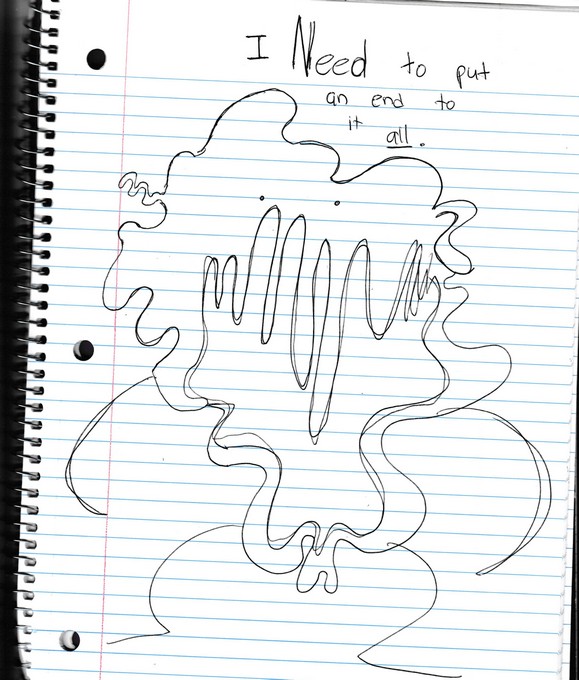 I Need to put
an end to
it all.